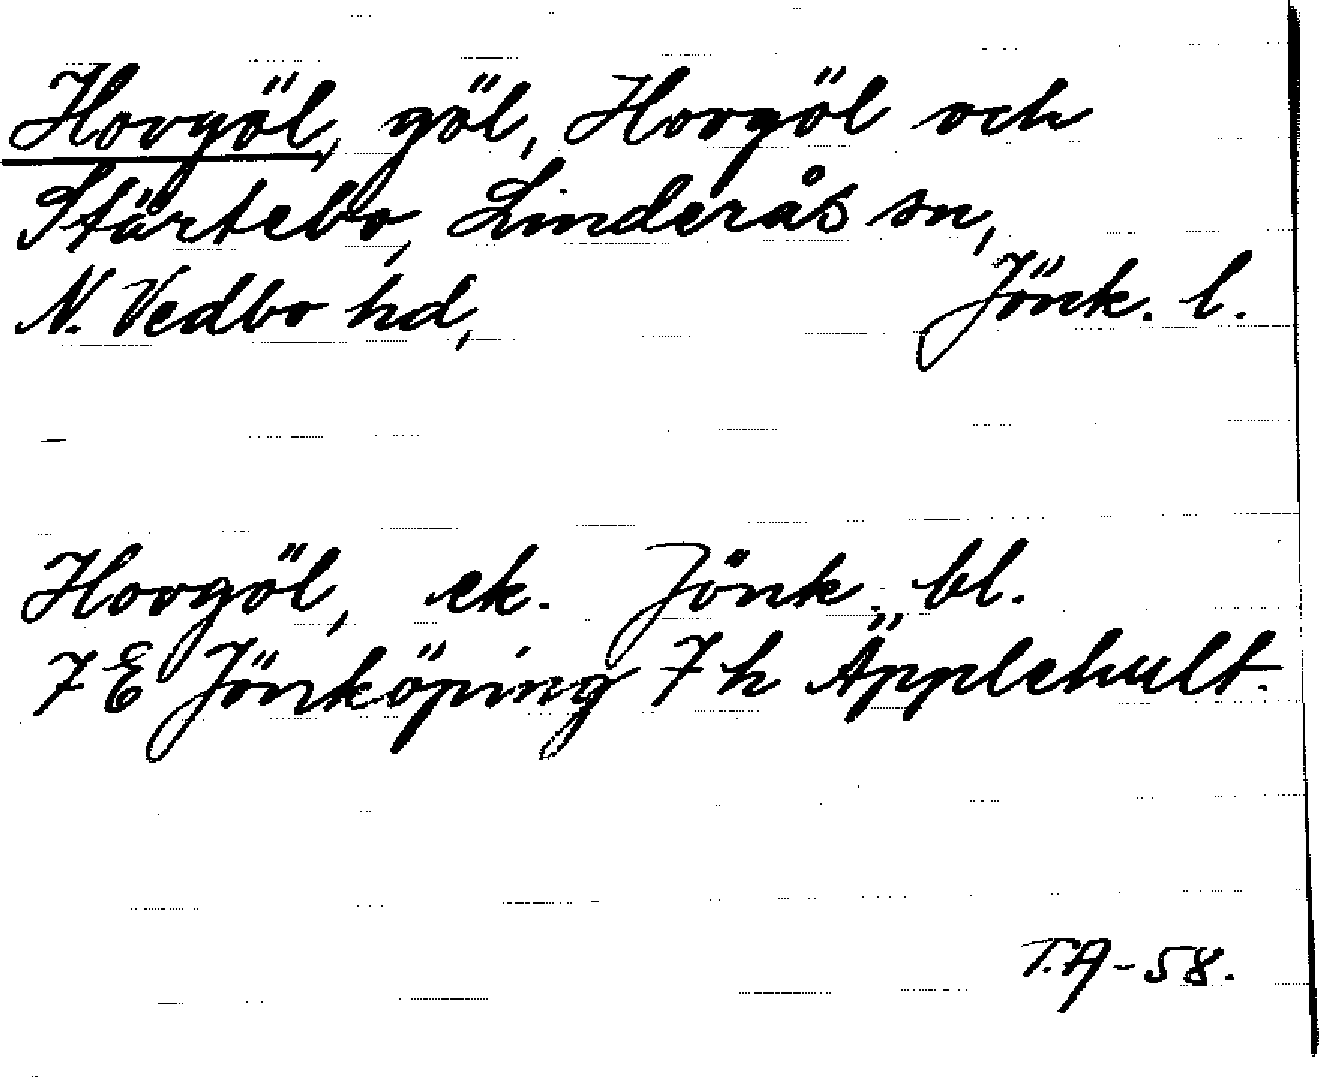 Hovgöl, göl, Hovgöl och
Stärtebo, Linderås sn,
N. Vedbo hd, Jönk. l.
Hovgöl, ek. Jönk. bl.
7 E Jönköping 7 h Äpplehult.
T.A-58.